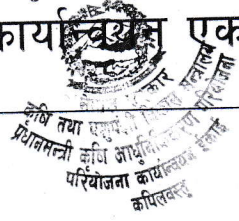 कार्यान्वयन एक
नेपाल सरकार
कृषि तथा पशुपन्छी विकास मन्त्रालय
प्रधानमन्त्री कृषि आधुनिकीकरण परियोजना
परियोजना कार्यान्वयन इकाई
कपिलवस्तु